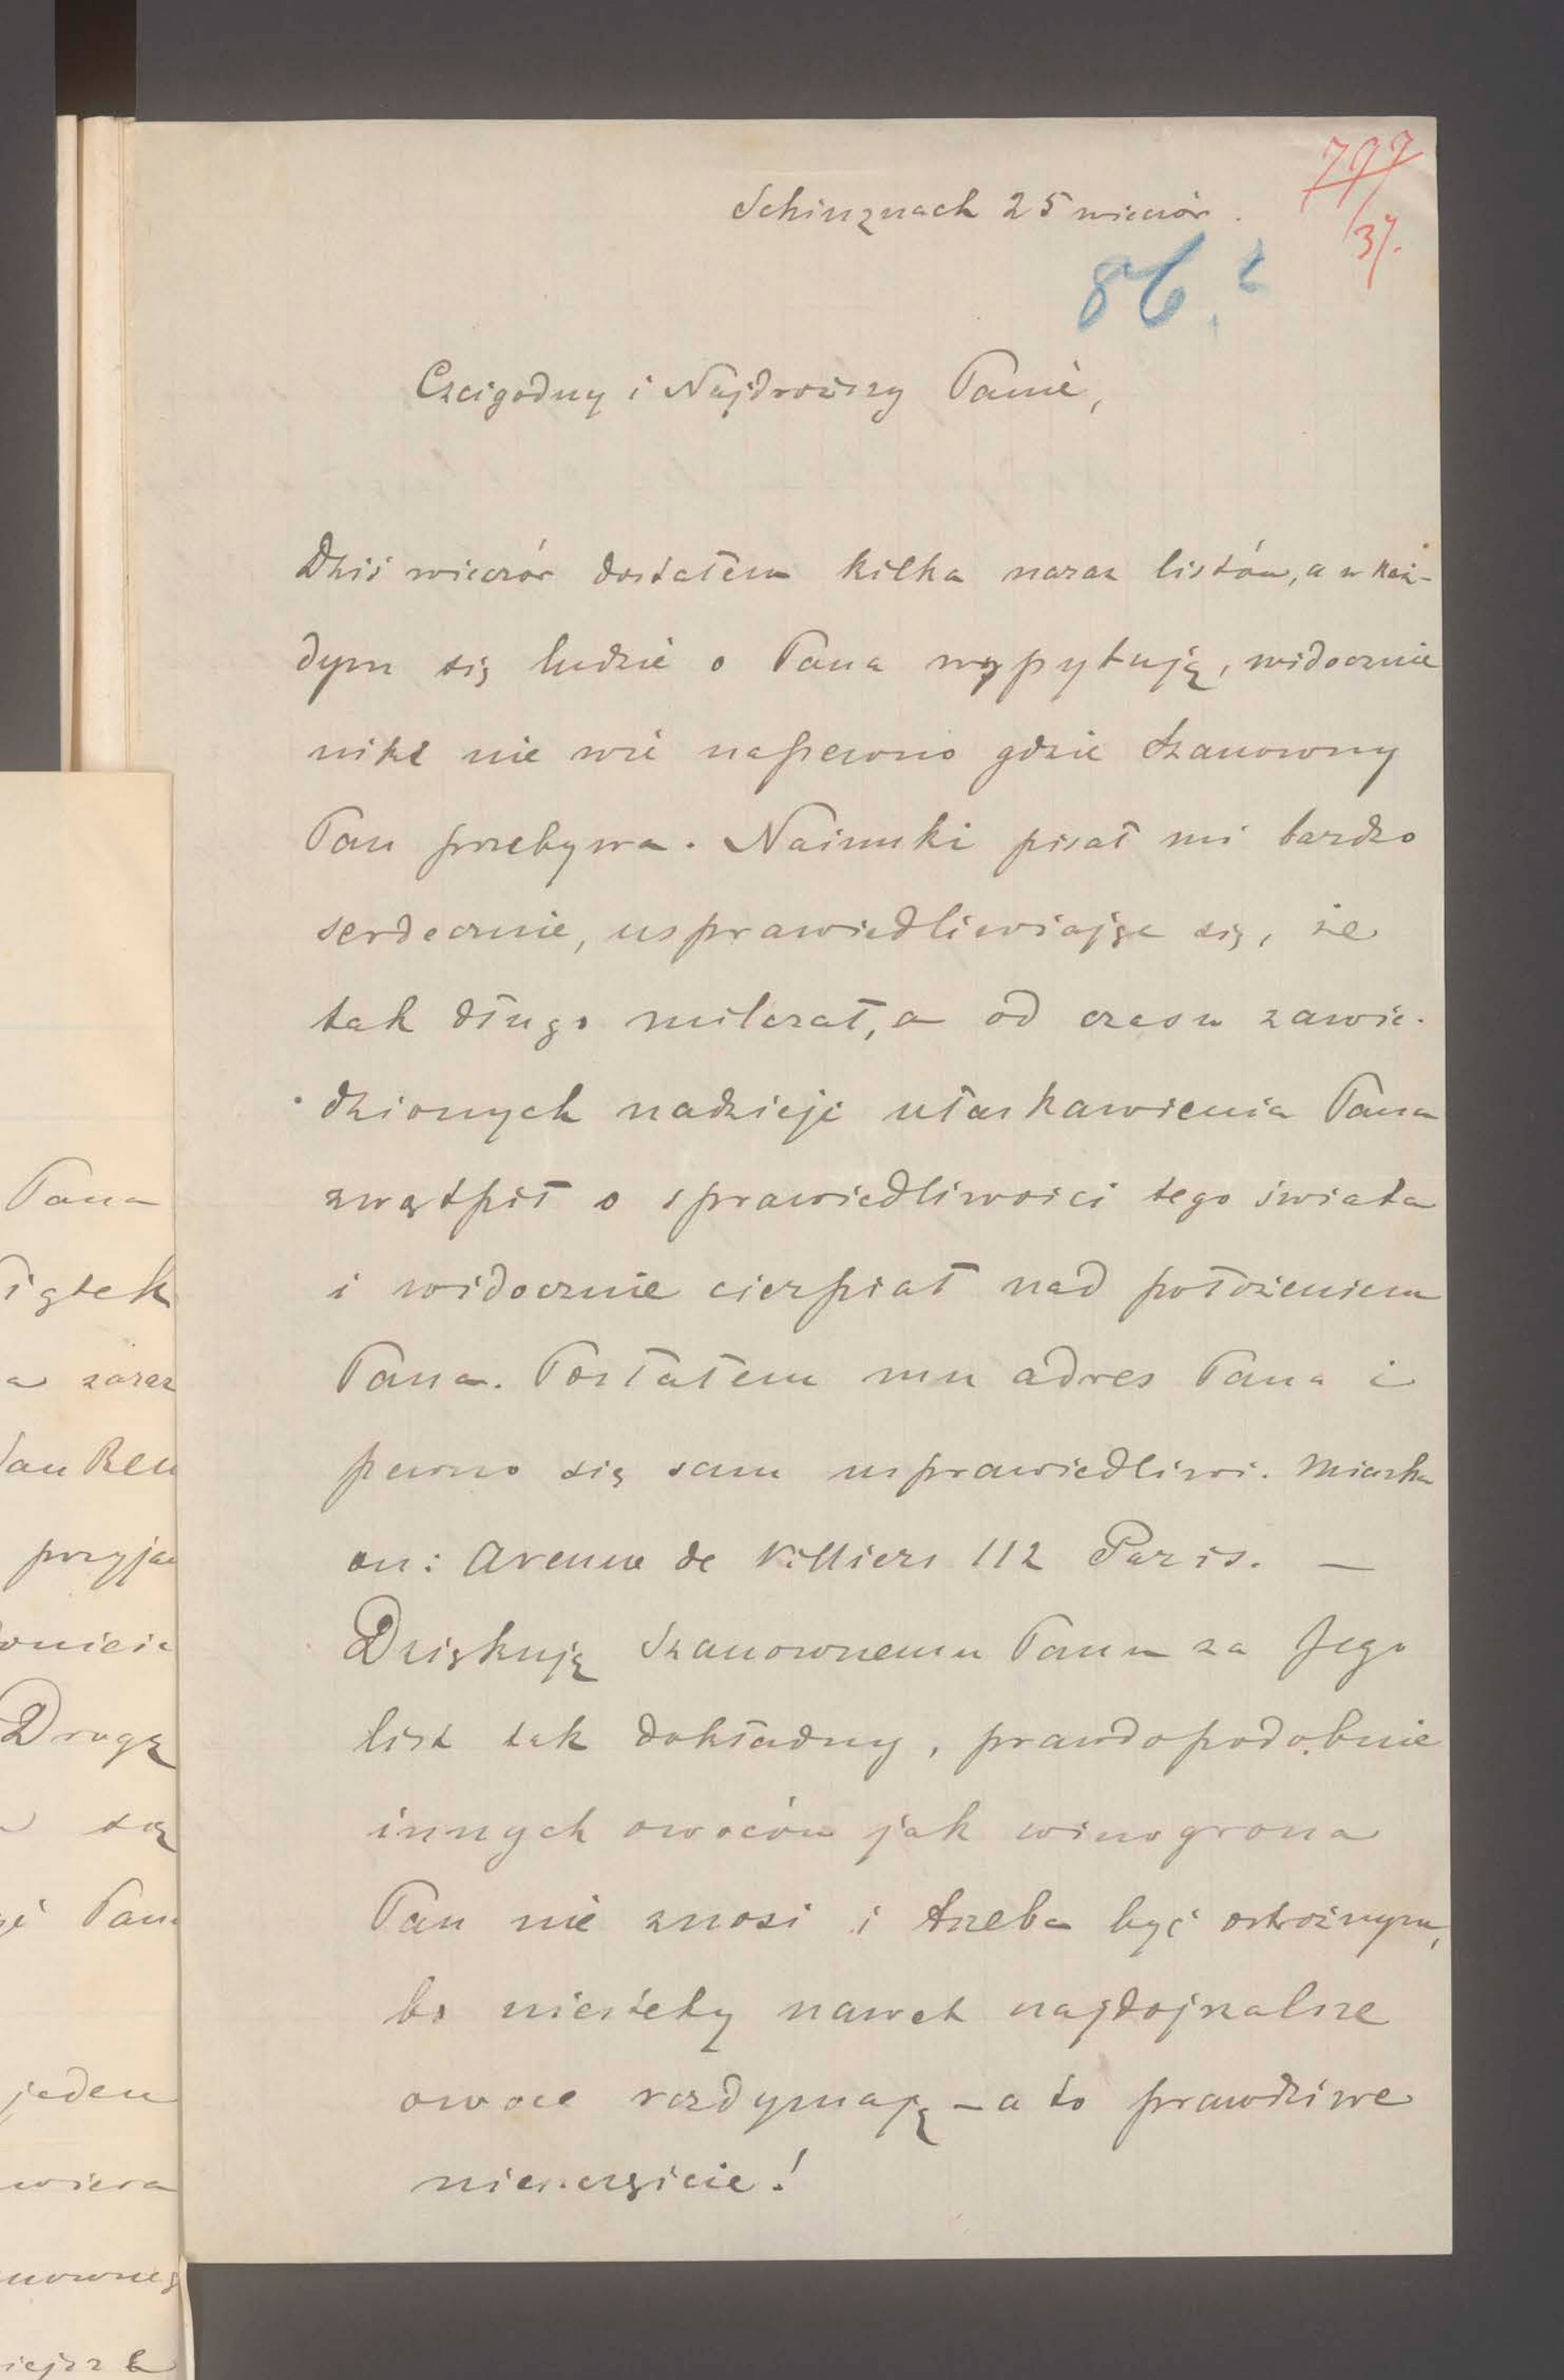 797
37.
Schinznach 25 wieczór.
86.?
Czcigodny i Najdroższy Panie,
Dziś wieczór dostałem kilka naraz listów, a w każ-
dym się ludzie o Pana wypytują, widocznie
nikt nie wie napewno gdzie Szanowny
Pan przebywa. pisał mi bardzo
serdecznie, usprawiedliwiając się, że
tak długo milczał, a od czasu zawie-
dzionych nadzieji ułaskawienia Pana
zwątpił o sprawiedliwości tego świata
i widocznie cierpiał nad położeniem
Pana. Posłałem mu adres Pana i
pewno się sam usprawiedliwi. Mieszka
on: Avenue de Villiers 112 Paris. —
Dziękuję Szanownemu Panu za Jego
list tak dokładny, prawdopodobnie
innych owoców jak winogrona
Pan nie znosi i trzeba być ostrożnym,
bo niestety nawet najdojrzalsze
owoce rozdymają - a to prawdziwe
nieszczęście!
Pana
iątek
a zaraz
Pan Ren
przyja
onieić
Drogę
są
Pan
jeden
wiera
nownej
iejsze